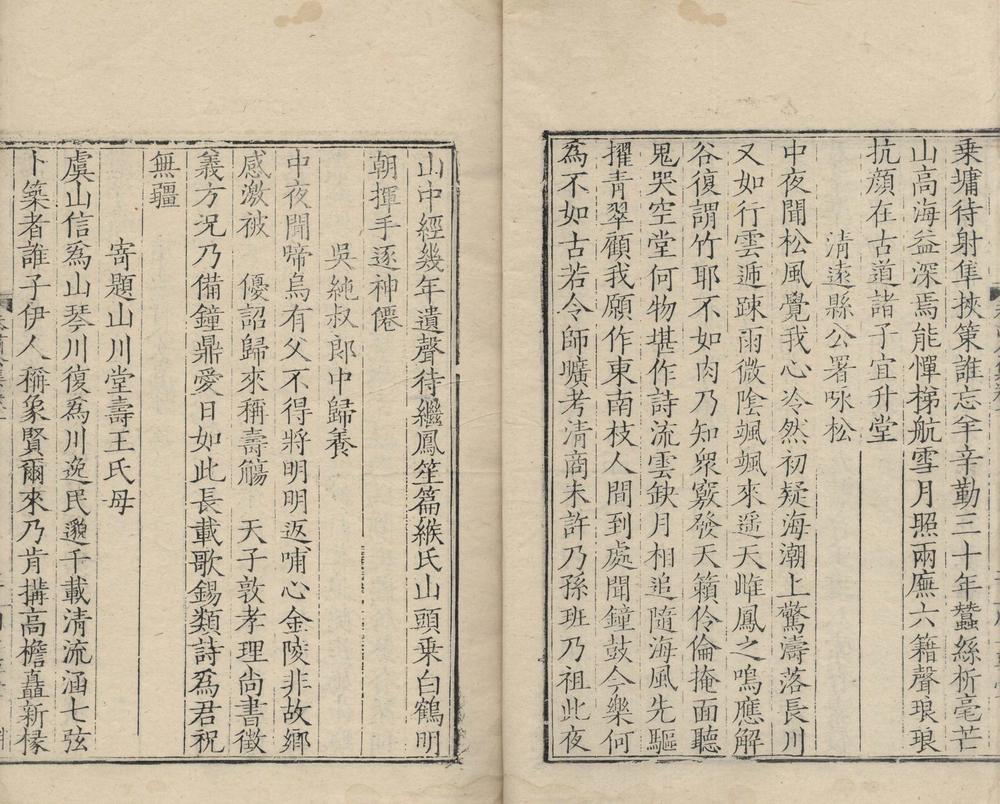 乗墉待射隼挾策誰忘羊辛勤三十年蠶絲析毫芒
山高海益深焉能憚梯航雪月照兩廡六籍聲琅琅
抗顔在古道諸子宜升堂
清遠縣公署咏松
中夜聞松風覺我心泠然初疑海潮上驚濤落長川
又如行雲遞踈雨微隂颯颯來遥天雌鳳之鳴應解
谷復謂竹耶不如肉乃知衆竅發天籟伶倫掩面聽
鬼哭空堂何物堪作詩流雲缺月相追隨海風先驅
擢青翠顧我願作東南枝人間到處聞鐘鼓今樂何
為不如古若令師曠考清商未許乃孫班乃祖此夜
山中經幾年遺聲待繼鳳笙篇緱氏山頭乗白鶴明
朝揮手逐神僊
吳純叔郎中歸養
中夜聞啼烏有父不得將明明返哺心金陵非故鄉
感激被 優詔歸來稱壽觴 天子敦孝理尚書徵
義方况乃備鐘鼎愛日如此長載歌錫類詩為君祝
無疆
寄題山川堂壽王氏母
虞山信爲山琴川復爲川逸民邈千載清流涵七弦
卜築者誰子伊人稱象賢爾來乃肯搆高檐矗新椽